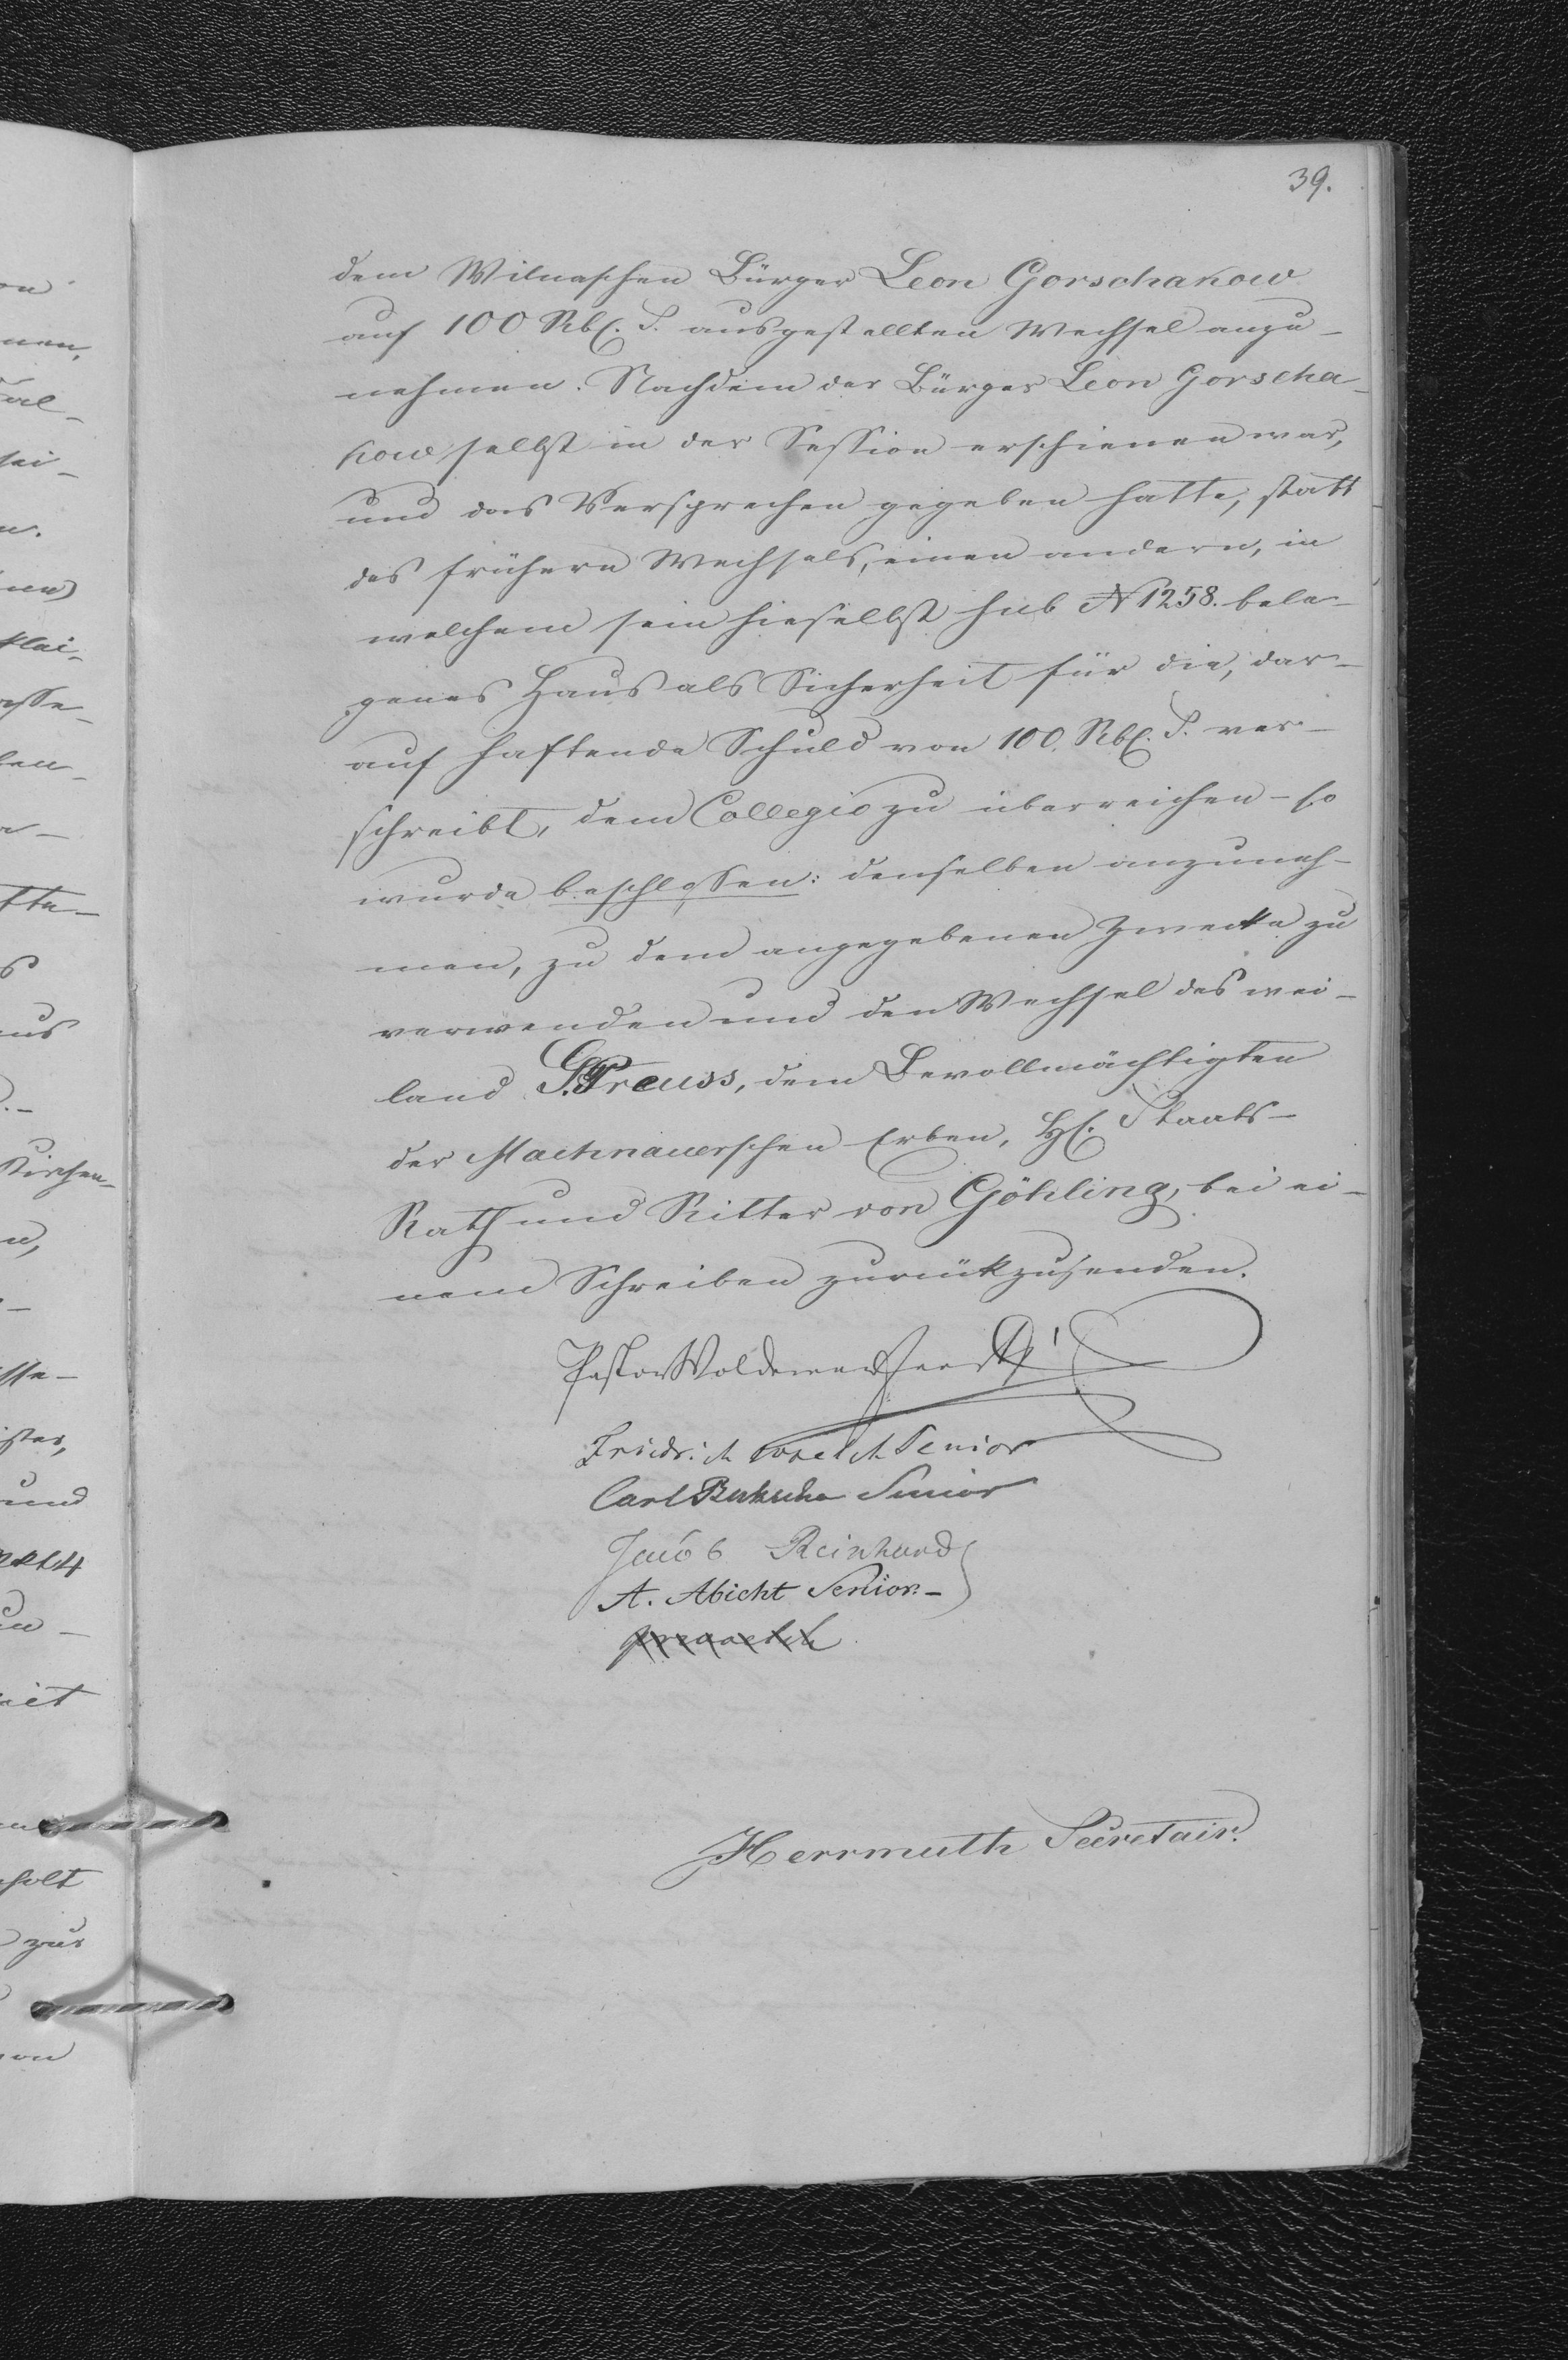 39.
dem Wilnaschen Bürger Leon Gorschakow
auf 100 Rbl. S. ausgestellten Wechsel anzu-
nehmen. Nachdem der Bürger Leon Gorscha-
kow selbst in der Session erschienen war,
und das Versprechen gegeben hatte, statt
des frühern Wechsels, einen andern, in
welchem sein hieselbst sub N 1258. bele-
genes Haus als Sicherheit für die, dar-
auf haftende Schuld von 100. Rbl. S. ver-
schreibt, dem Collegio zu überreichen - so
wurde beschlossen: denselben anzuneh-
men, zu dem angegebenen Zwecke zu
verwenden und den Wechsel des wei-
land G. Preuss, dem Bevollmächtigten
der Machnauerschen Erben, H. Staats-
Rath und Ritter von Göhling, bei ei-
nem Schreiben zurückzusenden.
Pastor Woldemar
Friedrich Senior
Carl Senior
Jacob Reinhard
A. Abicht Senior.-
Herrmuth Secretair.